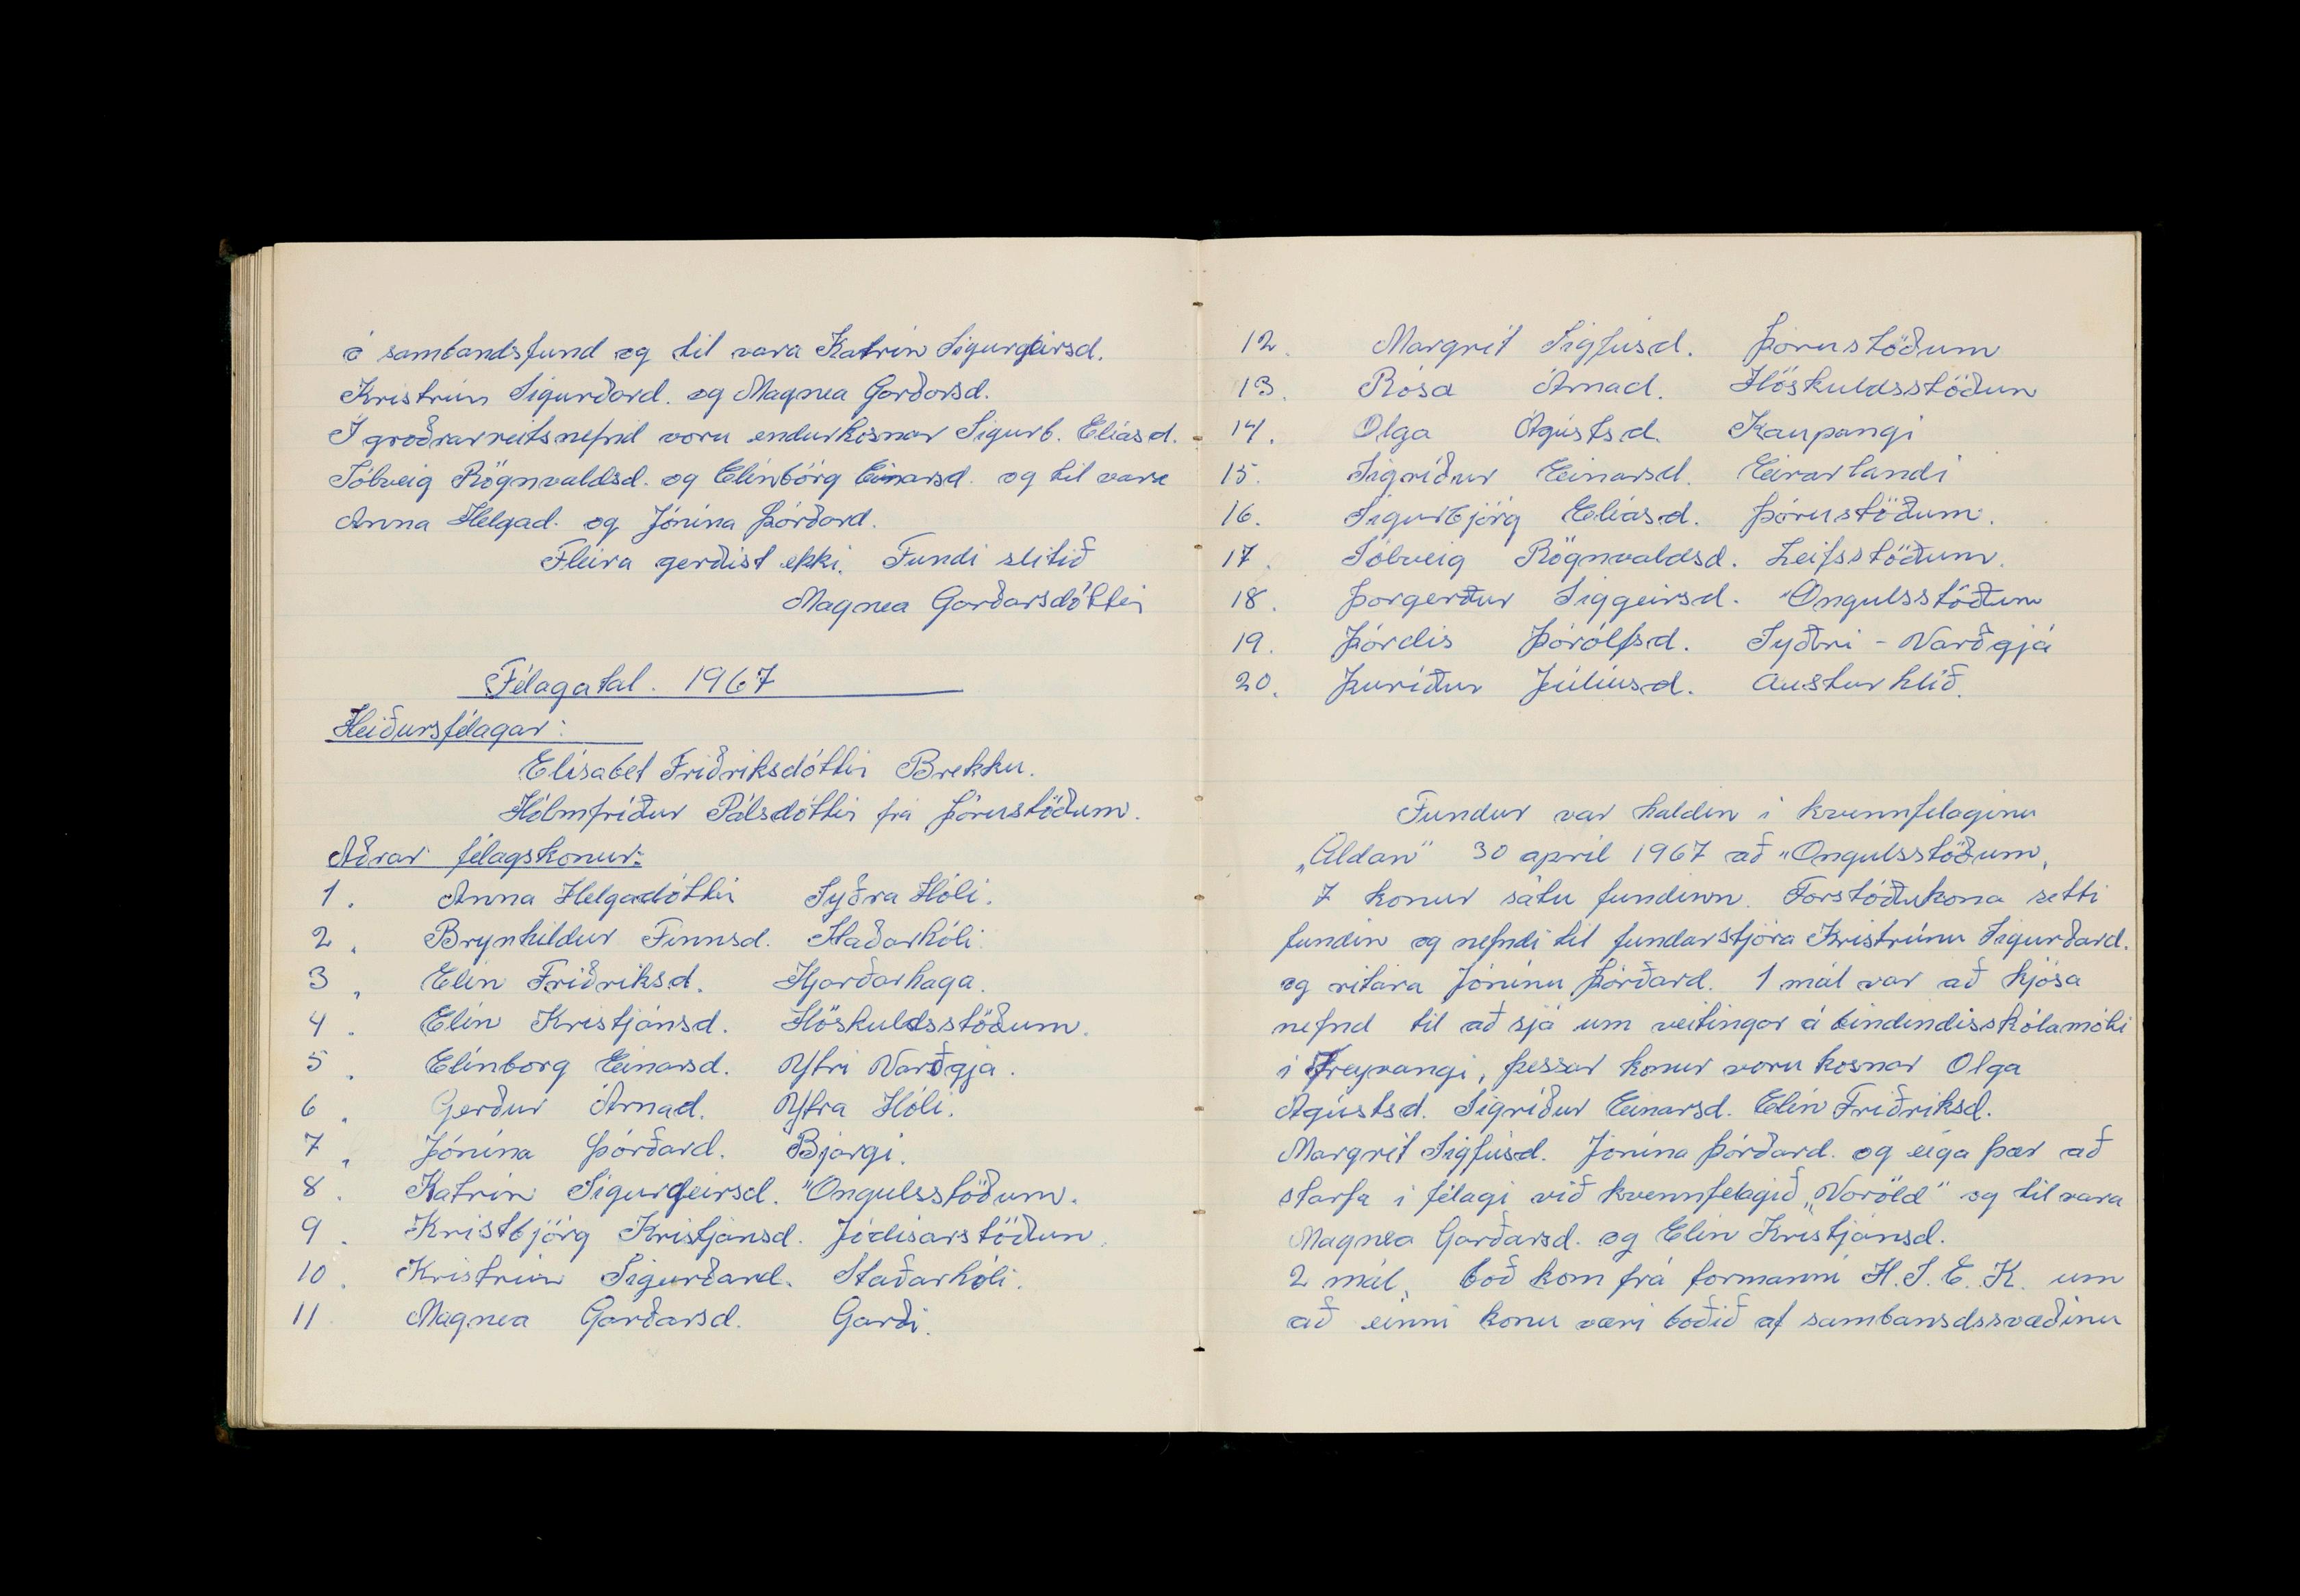 á sambandsfund og til vara Katrín Sigurgeirsd.
Kristrún Sigurðard. og Magnea Garðarsd.
Í groðrarreitsnefnd voru endurkosnar Sigurb. Elíasd.
Sólveig Rögnvaldsd. og Elinbörg Einarsd. og til vara
Anna Helgad. og Jónína Þórðard.
Fleira gerðist ekki. Fundi slitið
Magnea Garðarsdóttir
Félagatal. 1967
Heiðursfélagar:
Elísabet Friðriksdóttir Brekku.
Hólmfríður Pálsdóttir frá Þórustöðum.
Aðrar félagskonur:
1. Anna Helgadóttir Syðra Hóli.
2. Brynhildur Finnsd. Staðarhóli.
3. Elín Friðriksd. Hjarðarhaga.
4. Elín Kristjánsd. Höskuldsstöðum.
5. Elínborg Einarsd. Ytri Varðgjá.
6. Gerður Árnad. Ytra Hóli.
7. Jónína Þórðard. Bjargi.
8. Katrín Sigurgeirsd. Öngulsstöðum.
9. Kristbjörg Kristjánsd. Jódísarstöðum.
10. Kristrún Sigurðard. Staðarhóli.
11 Magnea Garðarsd. Garði.
12. Margrét Sigfúsd. Þórustöðum
13. Rósa Árnad. Höskuldsstöðum
14. Olga Ágústsd. Kaupangi
15. Sigríður Einarsd. Eirarlandi
16. Sigurbjörg Elíasd. Þórustöðum.
17. Sólveig Rögnvaldsd. Leifsstöðum.
18. Þorgerður Siggeirsd. Öngulsstöðum
19. Þórdís Þórólfsd. Syðri - Varðgjá
20. Þuríður Júlíusd. Austurhlíð.
Fundur var haldin í kvennfelaginu
„Aldan" 30 apríl 1967 að Öngulsstöðum,
7 konur sátu fundinn. Forstöðukona setti
fundin og nefndi til fundarstjóra Kristrúnu Sigurðard.
og ritara Jónínu Þórðard. 1 mál var að kjósa
nefnd til að sjá um veitingar á bindindisskólamóti
í Freyvangi, þessar konur voru kosnar Olga
Ágústsd. Sigríður Einarsd. Elín Friðriksd.
Margrét Sigfúsd. Jónína Þórðard. og eiga þær að
starfa í félagi við kvennfelagið „Voröld" og til vara
Magnea Garðarsd. og Elín Kristjánsd.
2 mál, boð kom frá formanni H.S.E.K. um
að einni konu væri boðið af sambansdssvæðinu